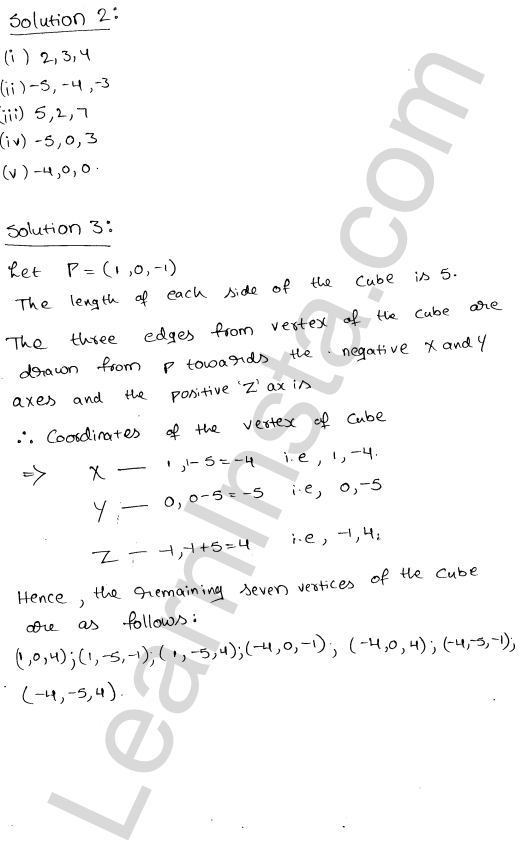 Solution 2:
(i) 2,3,4
(ii) -5, -4, -3
(iii) 5,2,7
(iv) -5,0,3
(v) -4,0,0.
Solution 3:
Let P = (1,0,-1)
The length of each side of the cube is 5.
The three edges from vertex of the cube are
drawn from P towards the negative X and Y
axes and the positive 'Z' axis
∴ Coordinates of the vertex of cube
⇒ X — 1, 1-5=-4 i.e, 1, -4.
Y — 0, 0-5=-5 i.e, 0,-5
Z — -1,-1+5=4 i.e, -1,4;
Hence, the remaining seven vertices of the cube
are as follows:
(1,0,4);(1,-5,-1);(1,-5,4);(-4,0,-1); (-4,0,4);(-4,-5,-1);
(-4,-5,4).
LearnInsta.com